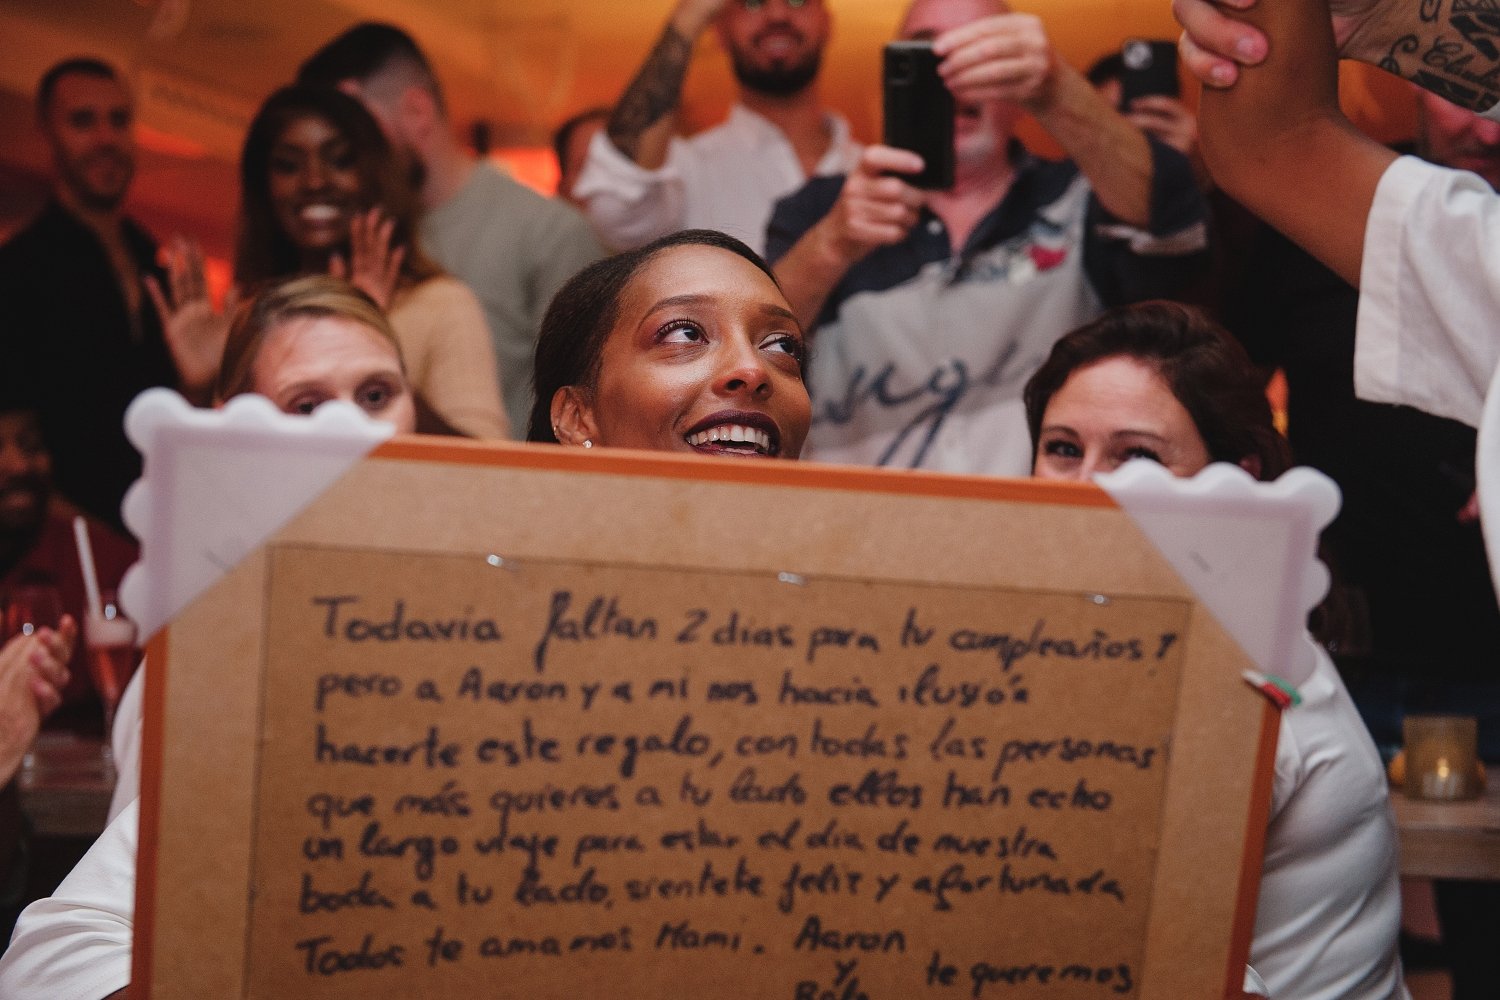 Todavia faltan 2 dias para tu cumpleaños ?
pero a Aaron y a mi nos hacia ilusión
hacerte este regalo, con todas las personas
que más quieres a tu lado ellos han echo
un largo viaje para estar el dia de nuestra
boda a tu lado, sientete feliz y afortunada
Todos te amamos Mami. Aaron
y te queremos